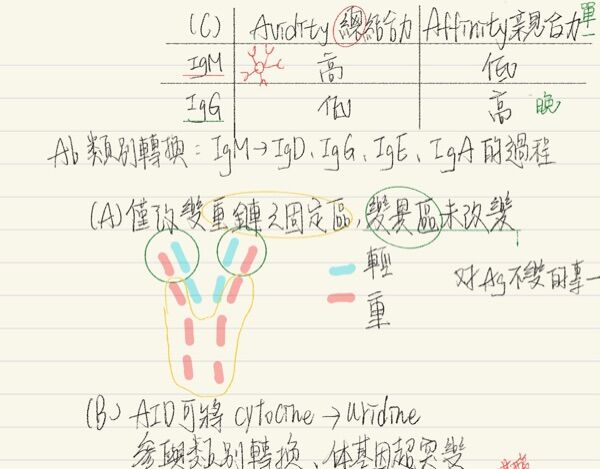 (C) Avidity 總結合力 Affinity 親和力 單一
IgM 高 低
IgG 低 高 晚
Ab 類別轉換：IgM→IgD、IgG、IgE、IgA 的過程
(A) 僅改變重鏈之固定區，變異區未改變
輕
對 Ag 不變的專一
重
(B) AID 可將 cytocine → uridine
參與類別轉換、体基因超突變